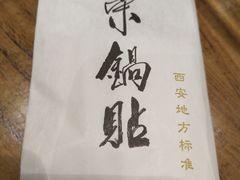 鍋貼
西安地方标准